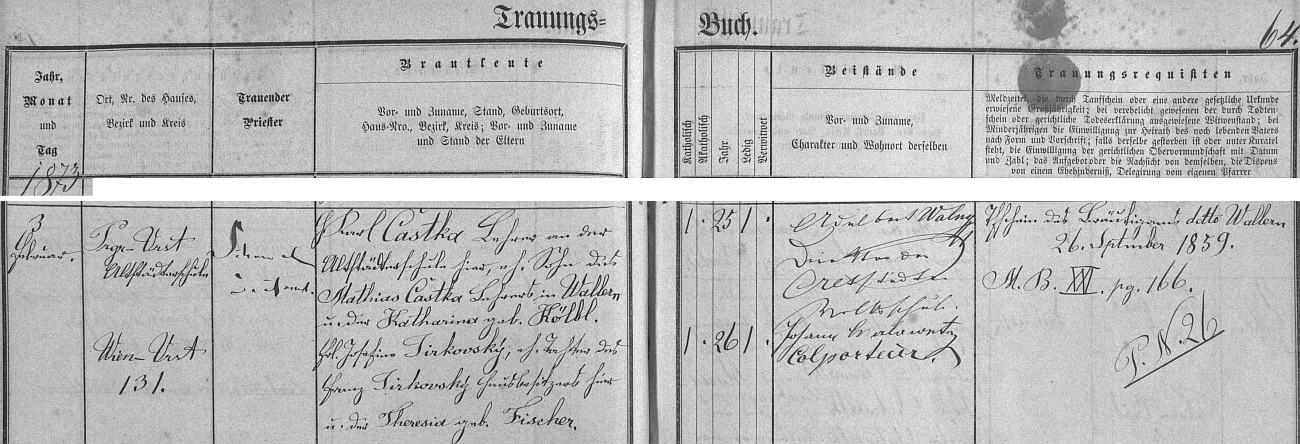 Trauungs=
Buch.
64.
Jahr,
Monat
und
Tag
1873
Ort, Nr. des Hauses,
Bezirk und Kreis
Trauender
Priester
Brautleute
Vor- und Zuname, Stand, Geburtsort,
Haus-Nro., Bezirk, Kreis; Vor- und Zuname
und Stand der Eltern
Katholisch
Akatholisch
Jahr
Ledig
Verwitwet
Beistände
Vor- und Zuname,
Charakter und Wohnort derselben
Trauungsrequisiten
Meldzettel, die durch Taufschein oder eine andere gesetzliche Urkunde
erwiesene Großjährigkeit; bei verehelicht gewesenen der durch Todten-
schein oder gerichtliche Todeserklärung ausgewiesene Wittwenstand; bei
Minderjährigen die Einwilligung zur Heirath des noch lebenden Vaters
nach Form und Vorschrift; falls derselbe gestorben ist oder unter Kuratel
steht, die Einwilligung der gerichtlichen Obervormundschaft mit Datum
und Zahl; das Aufgebot oder die Nachsicht von demselben, die Dispens
von einem Ehehinderniß, Delegirung vom eigenen Pfarrer
3
Februar.
Vrst
Altstädterschule
Wien-Vrst
131.
Karl Častka Lehrer an der
Altstädterschule hier, eh. Sohn des
Mathias Častka Lehrers in Wallern
u. der Katharina geb. Kölbl.
Josefine Jirkovský, eh. Tochter des
Franz Jirkovský Hausbesitzers hier
u. der Theresia geb. Fischer.
1. 25 1.
1. 26 1.
Adelbert
Direktor der
Johann
Colporteur.
Tfschein des Bräutigams ditto Wallern
26. Septmber 1859.
M. B. XVI. pg. 166.
P. N. 26